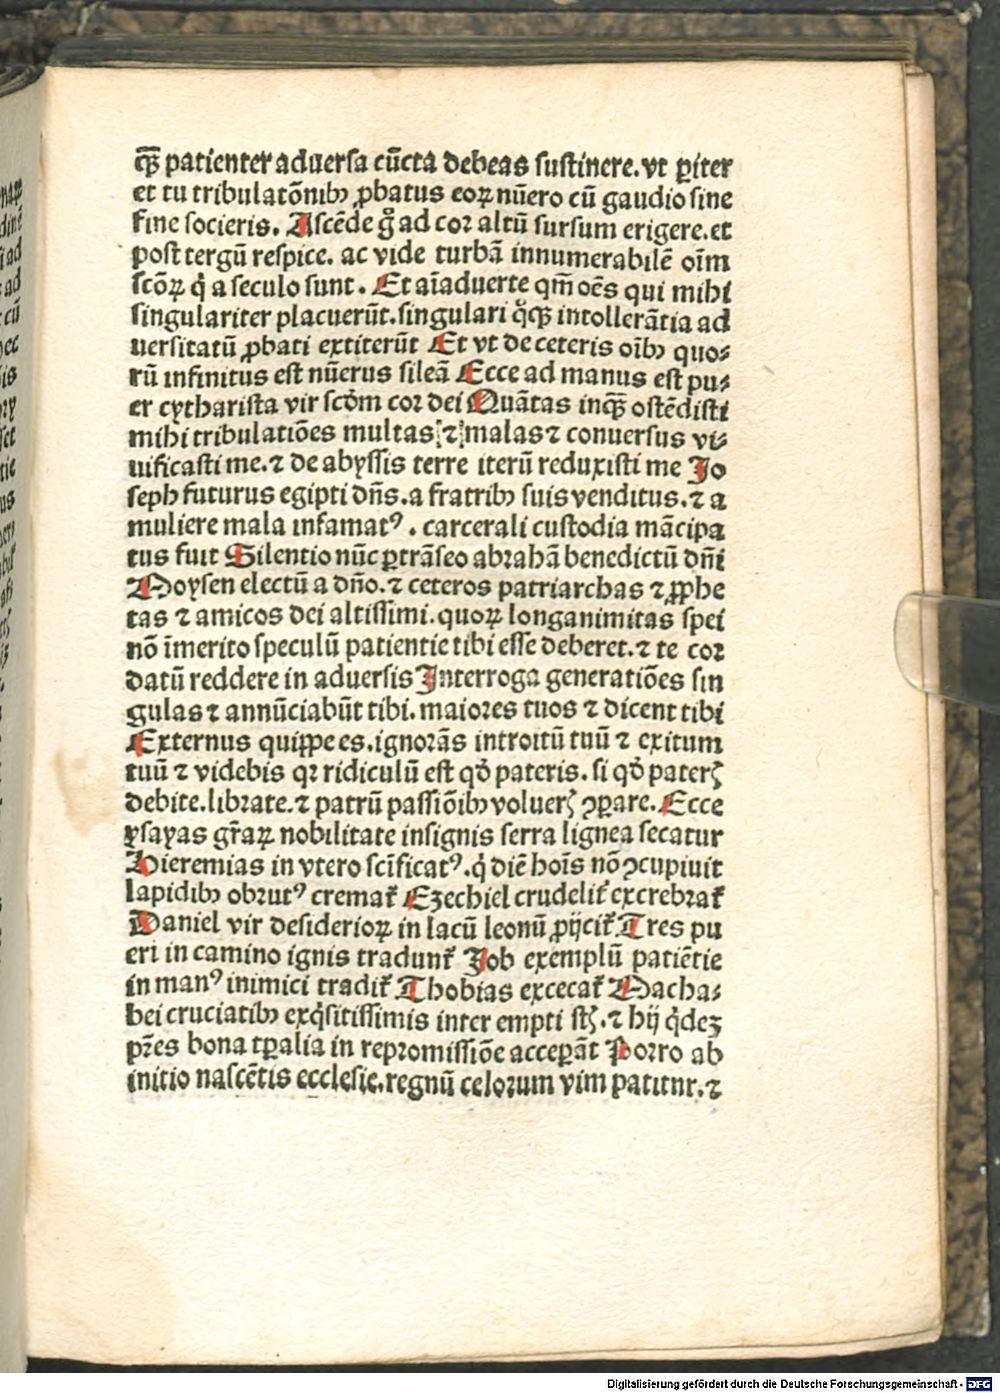 qꝫ patienter aduersa cūcta debeas sustinere. vt ꝑiter
et tu tribulatōnibꝫ ꝓbatus eoꝝ nūero cū gaudio sine
fine socieris. Ascēde gͦ ad cor altū sursum erigere. et
post tergū respice. ac vide turbā innumerabilē oīm
scōꝝ q̇ a seculo sunt. Et aīaduerte qm̄ oēs qui mihi
singulariter placuerūt. singulari qͦqꝫ intollerātia ad
uersitatū ꝓbati extiterūt Et vt de ceteris oībꝫ quo⸗
rū infinitus est nūerus sileā Ecce ad manus est pu⸗
er cytharista vir scḋm cor dei Quātas inqͣꝫ ostēdisti
mihi tribulatiōes multas ⁊ malas ⁊ conuersus vi⸗
uificasti me. ⁊ de abyssis terre iterū reduxisti me Jo
seph futurus egipti dn̄s. a fratribꝫ suis venditus. ⁊ a
muliere mala infamatꝰ. carcerali custodia mācipa
tus fuit Silentio nūc ꝑtrāseo abrahā benedictū dn̄i
Moysen electū a dn̄o. ⁊ ceteros patriarchas ⁊ ꝓphe
tas ⁊ amicos dei altissimi. quoꝝ longanimitas spei
nō īmerito speculū patientie tibi esse deberet. ⁊ te cor
datū reddere in aduersis Interroga generatiōes sin
gulas ⁊ annūciabūt tibi. maiores tuos ⁊ dicent tibi
Externus quippe es. ignorās introitū tuū ⁊ exitum
tuū ⁊ videbis qꝛ ridiculū est qḋ pateris. si qḋ paterꝭ
debite. librate. ⁊ patrū passiōibꝫ voluerꝭ ꝯꝑare. Ecce
ysayas gr̄aꝝ nobilitate insignis serra lignea secatur
Hieremias in vtero scīficatꝰ. q̇ diē hoīs nō ꝯcupiuit
lapidibꝫ obrutꝰ cremat᷑ Ezechiel crudelit᷑ excrebrat᷑
Daniel vir desiderioꝝ in lacū leonū ꝓijcit᷑ Tres pu
eri in camino ignis tradunt᷑ Job exemplū patiētie
in manꝰ inimici tradit᷑ Thobias excecat᷑ Macha⸗
bei cruciatibꝫ exq̇sitissimis inter empti st̄. ⁊ hij q̇dez
pr̄es bona tꝑalia in repromissiōe acceperāt Porro ab
initio nascētis ecclesie. regnū celorum vim patitur. ⁊
Digitalisierung gefördert durch die Deutsche Forschungsgemeinschaft - DFG